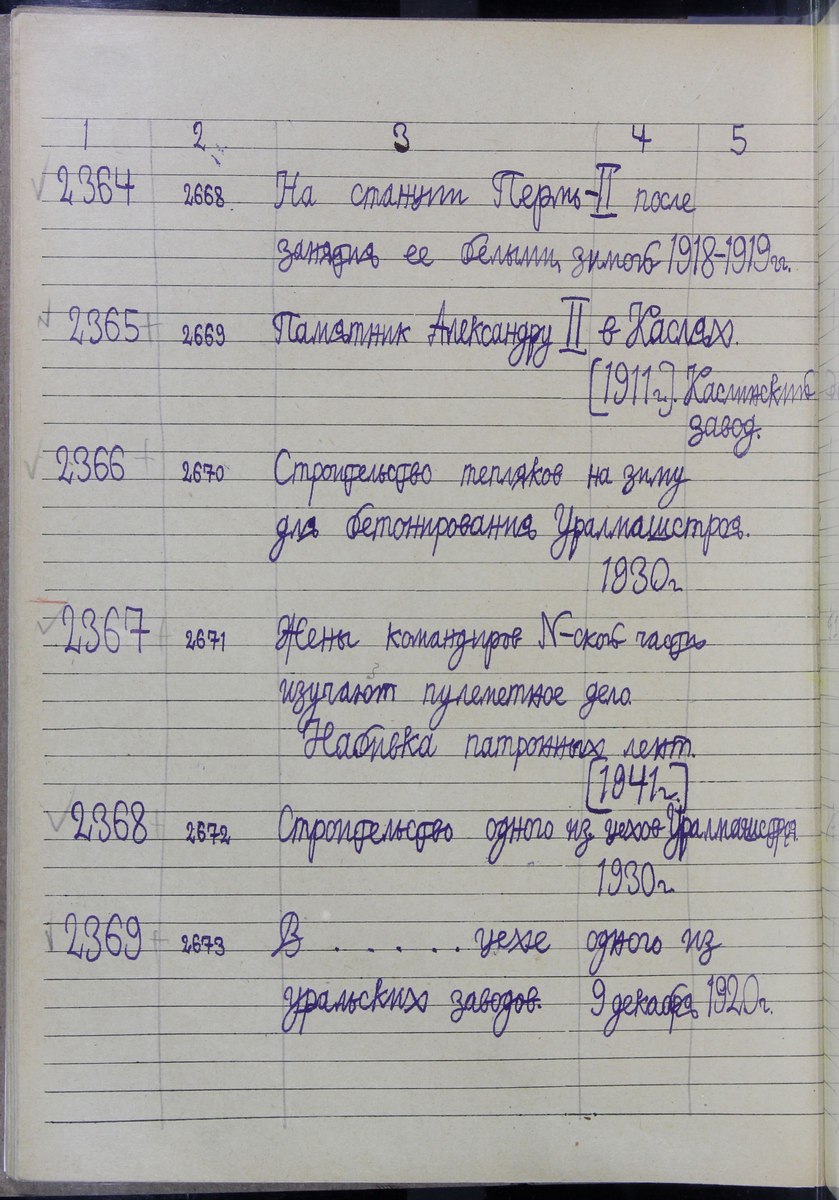 1 2 3 4 5
2364 2668 На станции Пермь-II после
занятия ее белыми, зимой 1918-1919гг.
2365 2669 Памятник Александру II в Каслях.
[1911г.]. Каслинский
завод.
2366 2670 Строительство тепляков на зиму
для бетонирования Уралмашстроя.
1930г.
2367 2671 Жены командиров N-ской части
изучают пулеметное дело.
Набивка патронных лент.
[1941г.]
2368 2672 Строительство одного из цехов Уралмашстроя.
1930г.
2369 2673 В . . . . . . цехе одного из
уральских заводов. 9 декабря 1920г.